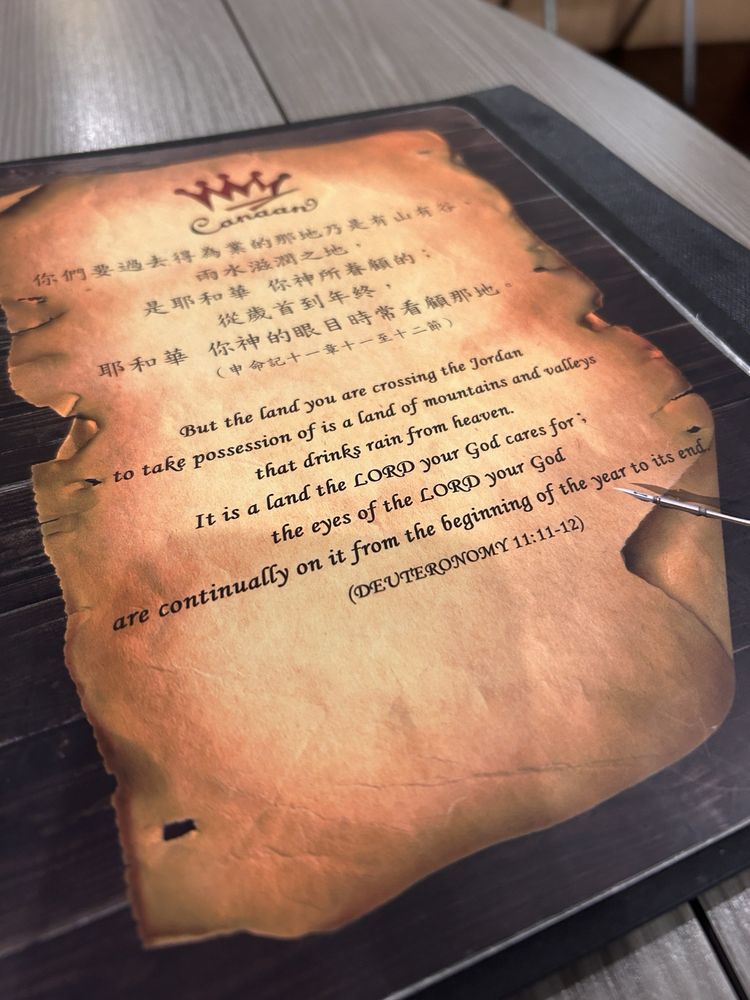 Canaan
你們要過去得為業的那地乃是有山有谷．
雨水滋潤之地，
是耶和華 你神所眷顧的；
從歲首到年終，
耶和華 你神的眼目時常看顧那地。
（申命記十一章十一至十二節）
But the land you are crossing the Jordan
to take possession of is a land of mountains and valleys
that drinks rain from heaven.
It is a land the LORD your God cares for;
the eyes of the LORD your God
are continually on it from the beginning of the year to its end.
(DEUTERONOMY 11:11-12)